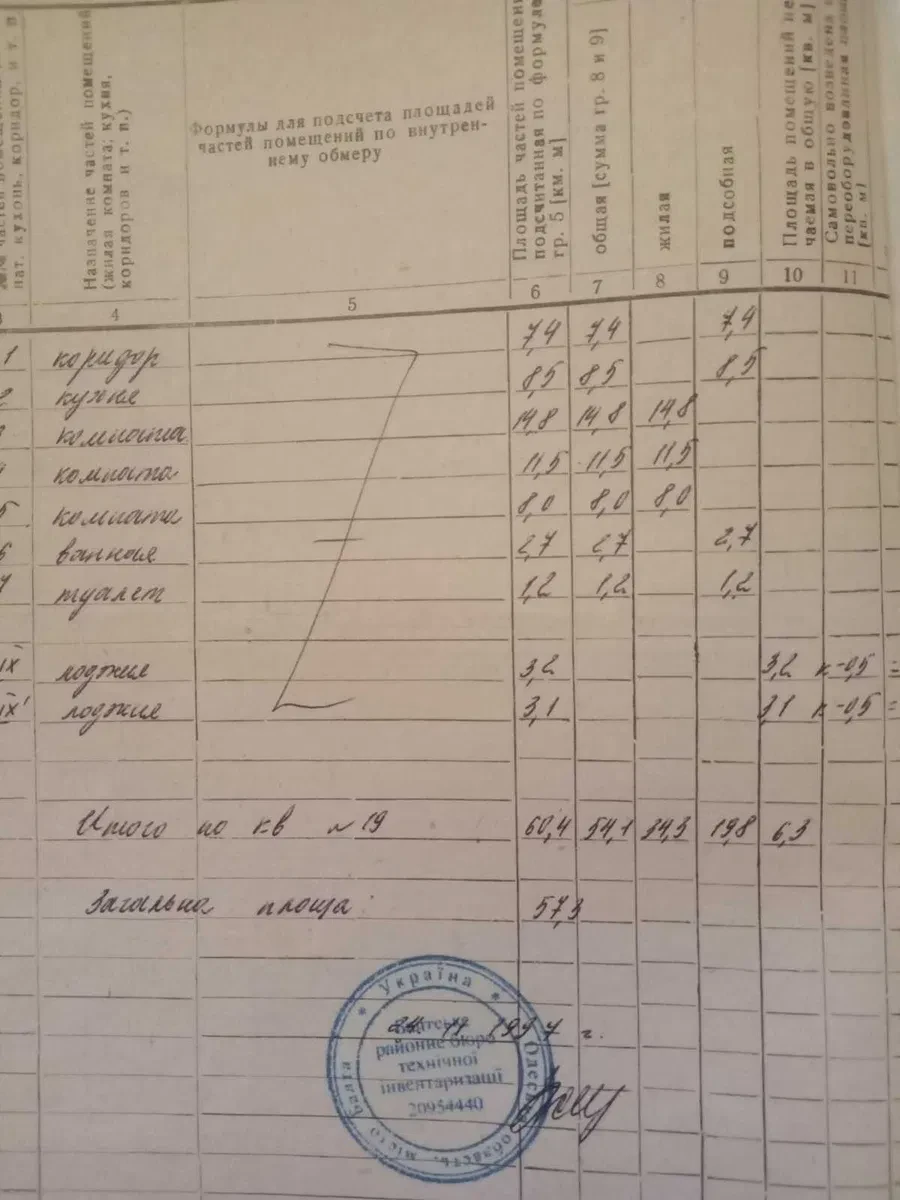 нат. кухонь, коридор, и т. п
Назначение частей помещений
(жилая комната; кухня,
коридоров и т. п.)
Формулы для подсчета площадей
частей помещений по внутрен-
нему обмеру
Площадь частей помещени
подсчитанная по формуле
гр. 5 [км. м]
общая [сумма гр. 8 и 9]
жилая
подсобная
Площадь помещений не
чаемая в общую [кв. м]
Самовольно возведена
переоборудованная
[кв. м]
3 4 5 6 7 8 9 10 11
1 коридор 7,4 7,4 7,4
2 кухня 8,5 8,5 8,5
3 комната 14,8 14,8 14,8
4 комната 11,5 11,5 11,5
5 комната 8,0 8,0 8,0
6 ванная 2,7 2,7 2,7
7 туалет 1,2 1,2 1,2
IX лоджия 3,2 3,2 к-0,5 =
IX' лоджия 3,1 3,1 к-0,5 =
Итого по кв №19 60,4 54,1 34,3 19,8 6,3
Загальна площа: 57,3
* Україна *
11 1997 г.
районне бюро
технічної
інвентаризації
20954440
область, місто Балта